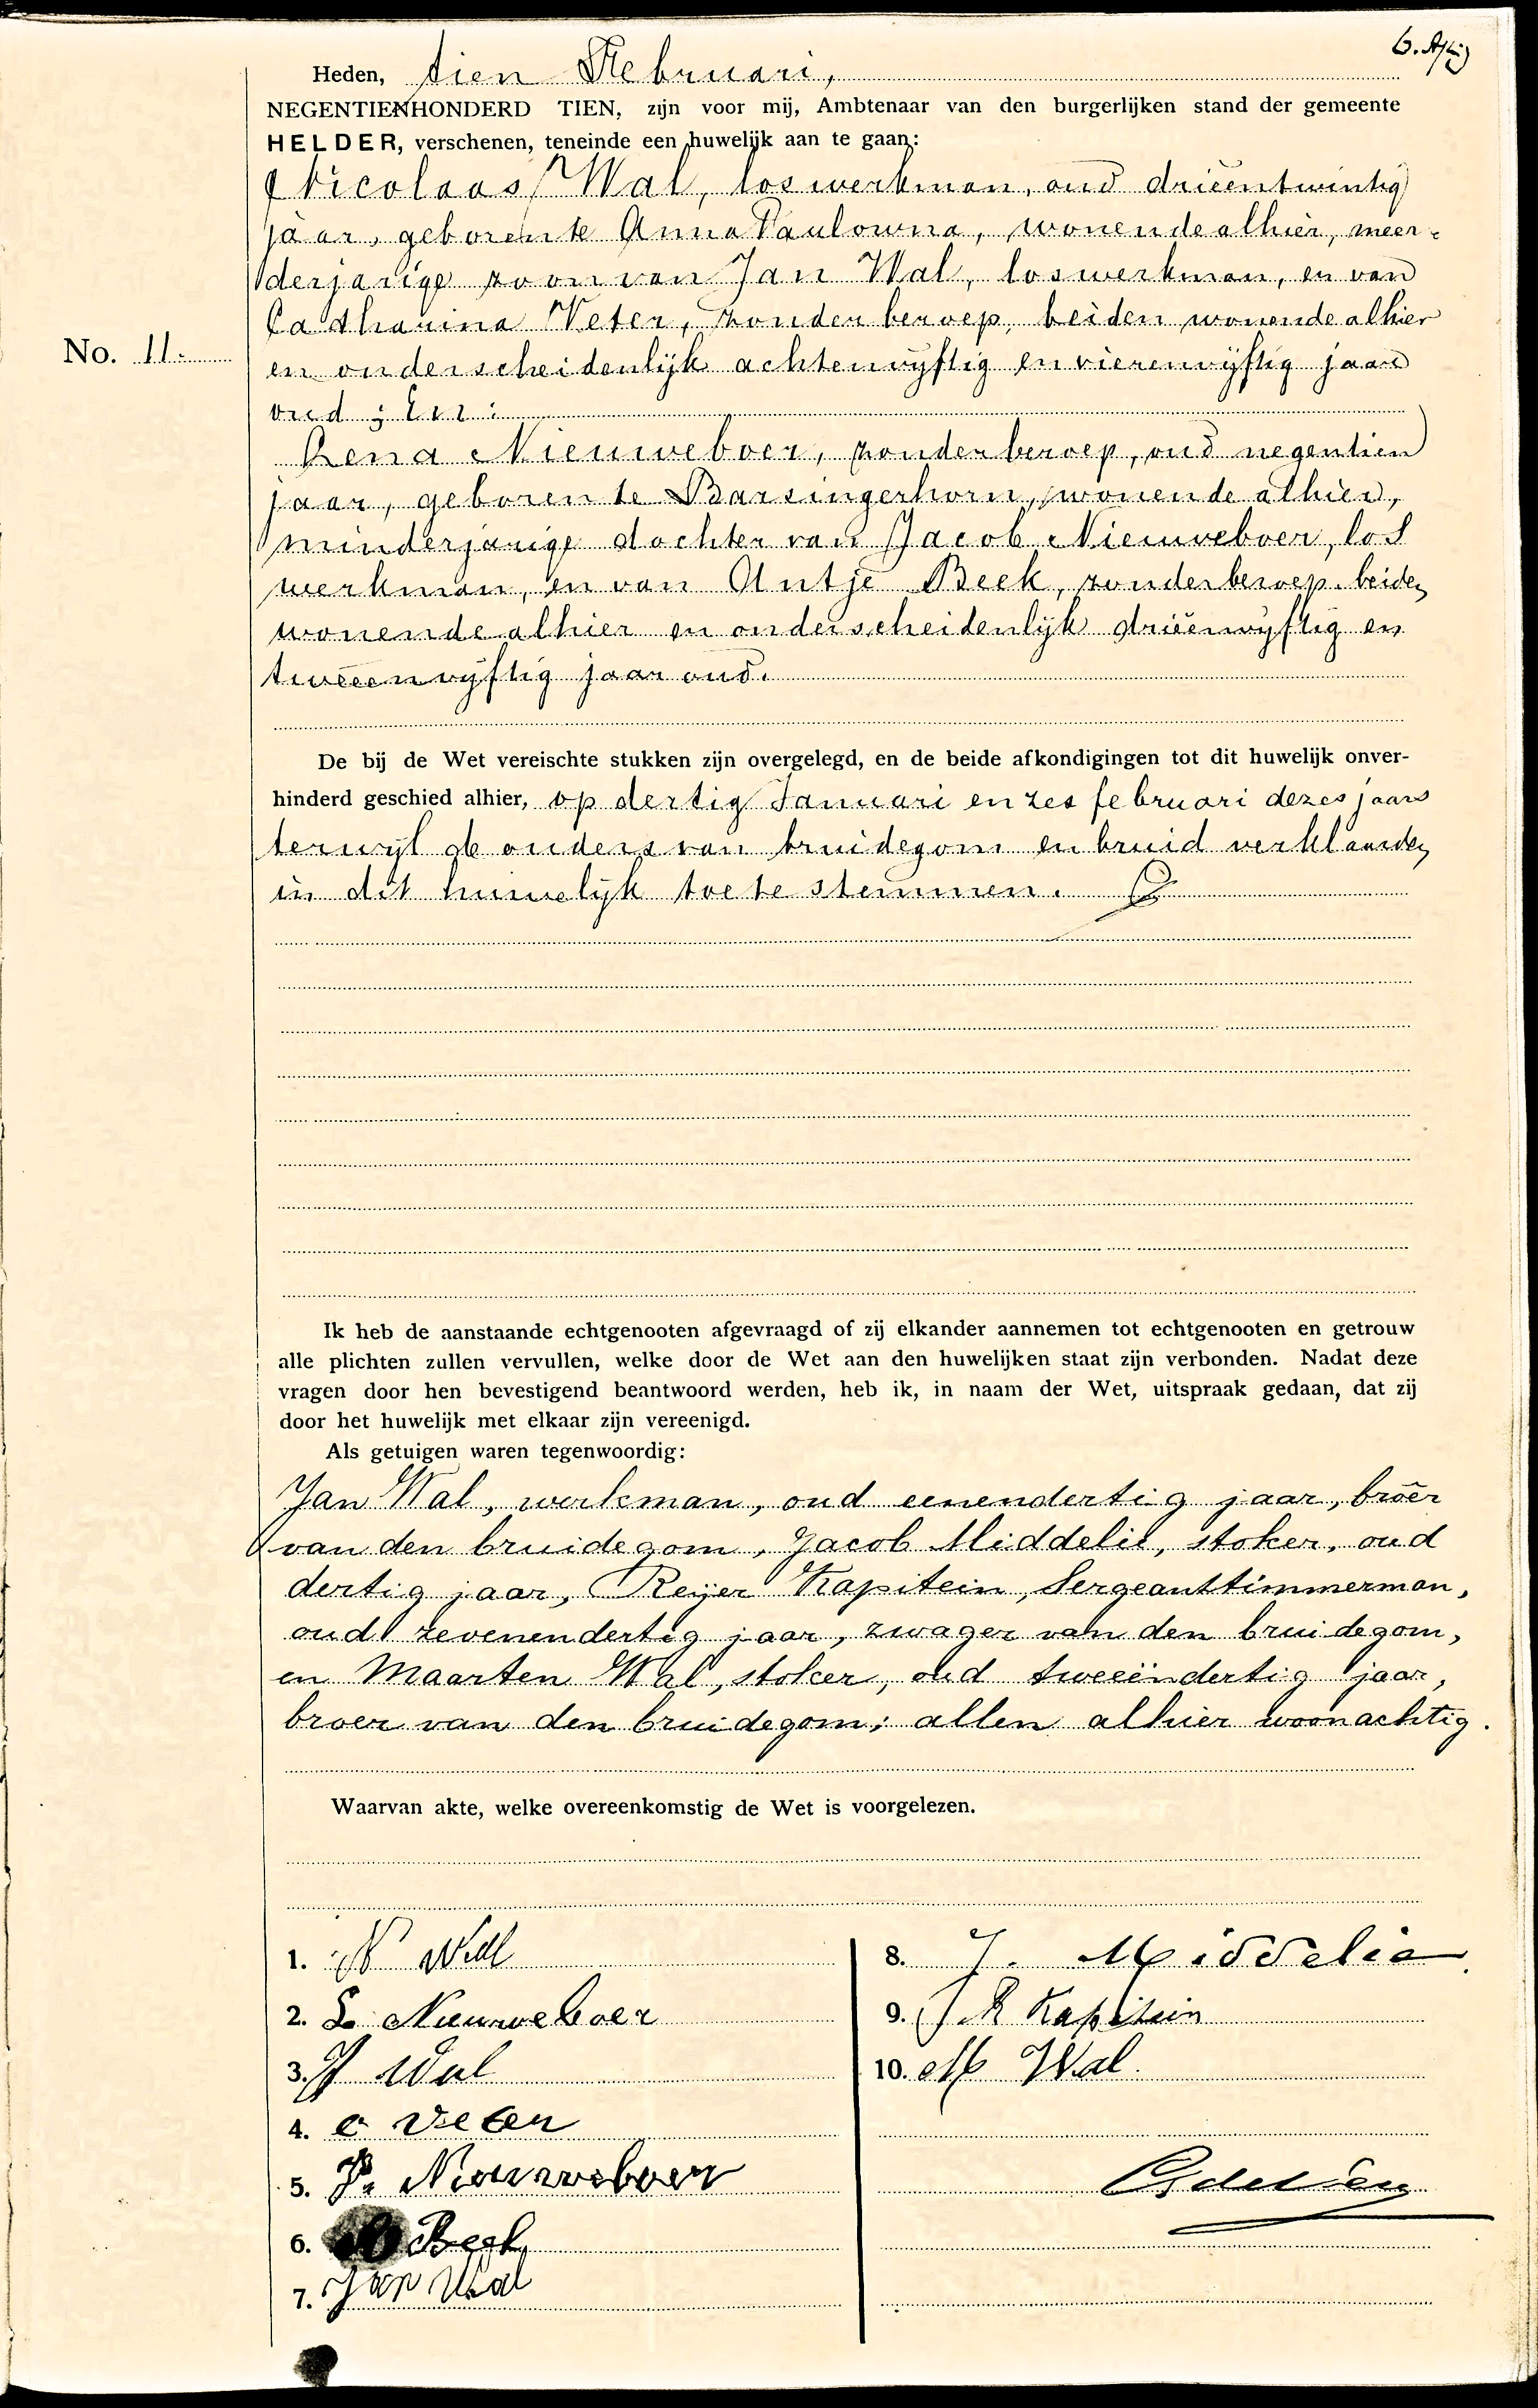 Heden, tien Februari,
NEGENTIENHONDERD TIEN, zijn voor mij, Ambtenaar van den burgerlijken stand der gemeente
HELDER, verschenen, teneinde een huwelijk aan te gaan:
Nicolaas Wal, los werkman, oud drieëntwintig
jaar, geboren te Anna Paulowna, wonende alhier, meer-
derjarige zoon van Jan Wal, los werkman, en van
Catharina Veter, zonder beroep, beiden wonende alhier
No. 11.
en onderscheidenlijk achtenvijftig en vierenvijftig jaar
oud; En:
Lena Nieuweboer, zonder beroep, oud negentien
jaar, geboren te Barsingerhorn, wonende alhier,
minderjarige dochter van Jacob Nieuweboer, los
werkman, en van Antje Beek, zonder beroep, beiden
wonende alhier en onderscheidenlijk drieënvijftig en
tweeënvijftig jaar oud.
De bij de Wet vereischte stukken zijn overgelegd, en de beide afkondigingen tot dit huwelijk onver-
hinderd geschied alhier, op dertig Januari en zes februari dezes jaars
terwijl de ouders van bruidegom en bruid verklaarden
in dit huwelijk toe te stemmen.
Ik heb de aanstaande echtgenooten afgevraagd of zij elkander aannemen tot echtgenooten en getrouw
alle plichten zullen vervullen, welke door de Wet aan den huwelijken staat zijn verbonden. Nadat deze
vragen door hen bevestigend beantwoord werden, heb ik, in naam der Wet, uitspraak gedaan, dat zij
door het huwelijk met elkaar zijn vereenigd.
Als getuigen waren tegenwoordig:
Jan Wal, werkman, oud eenendertig jaar, broêr
van den bruidegom, Jacob Middelie, stoker, oud
dertig jaar, Reijer Kapitein, Sergeanttimmerman,
oud zevenendertig jaar, zwager van den bruidegom,
en Maarten Wal, stoker, oud tweeëndertig jaar,
broer van den bruidegom; allen alhier woonachtig.
Waarvan akte, welke overeenkomstig de Wet is voorgelezen.
1. N Wal
2. L. Nieuweboer
3. J Wal
4. C Veter
5. J. Nieuweboer
6. Beek
7. Jan Wal
8. J. Middelie
9. R Kapitein
10. M Wal.